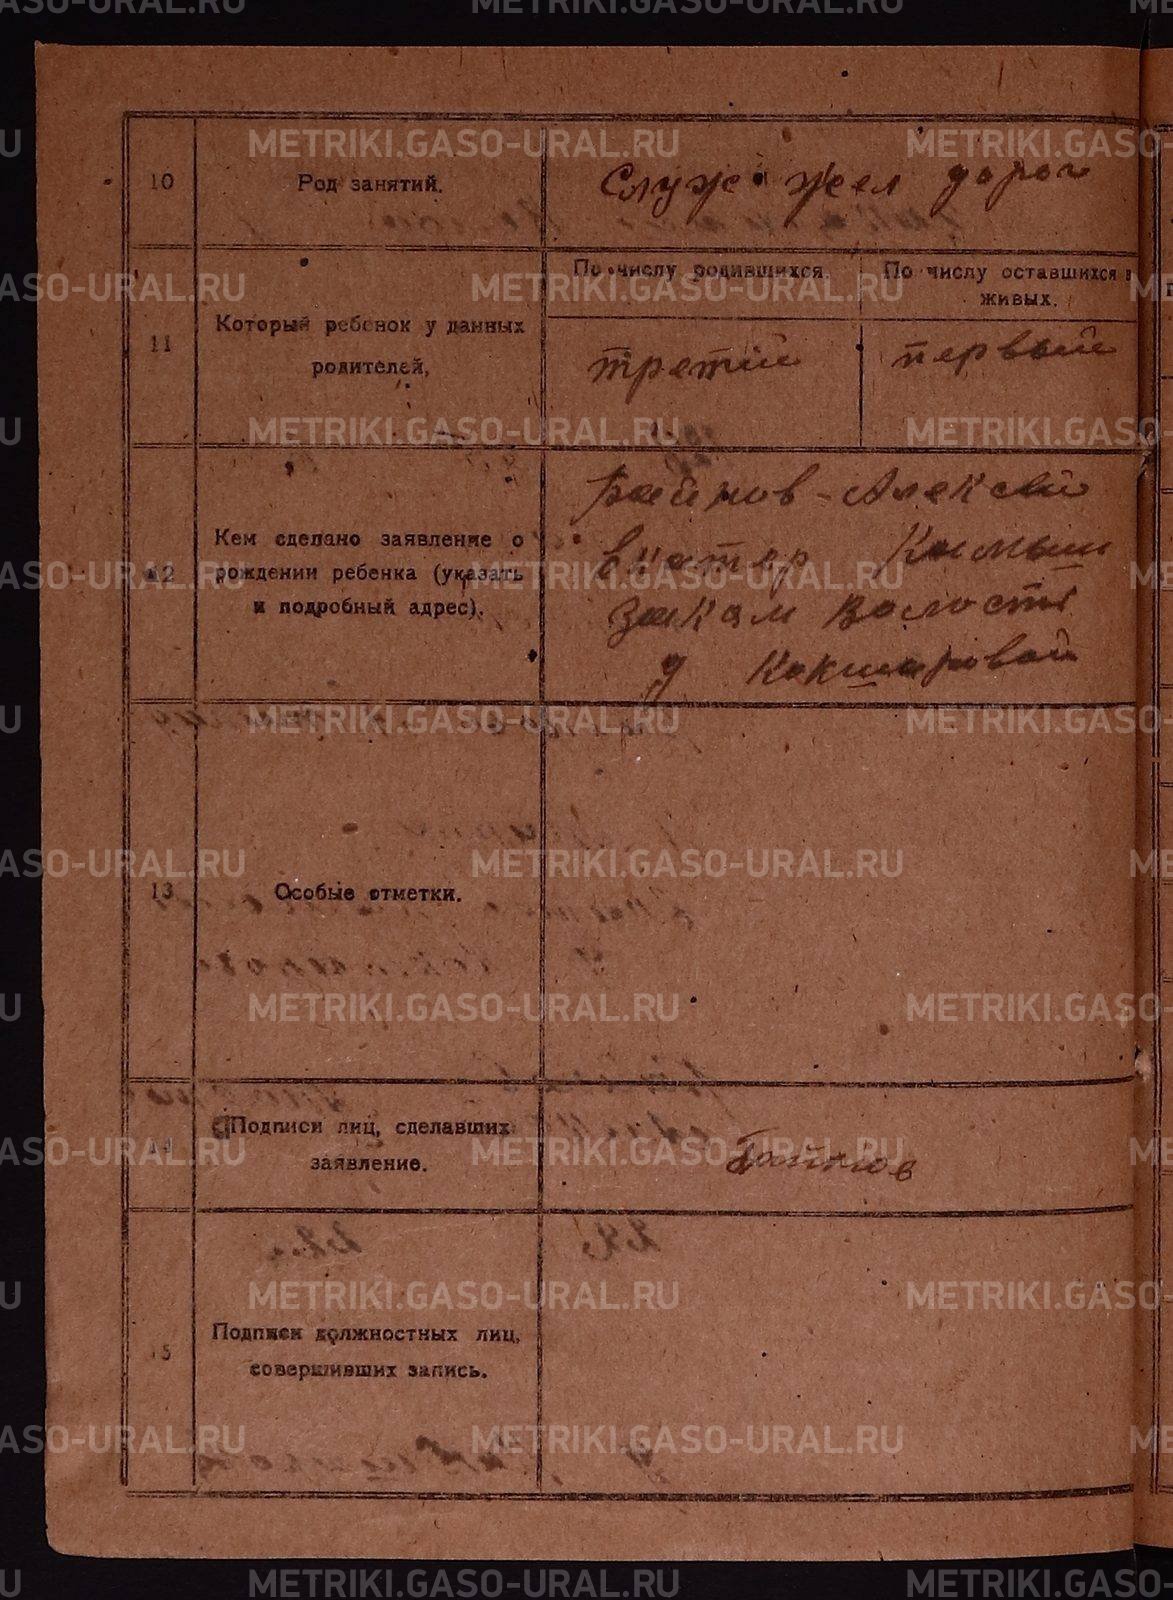 10
Род занятий.
Служ жел дорог
По числу родившихся.
По числу оставшихся в живых.
11
Который ребенок у данных
родителей,
третий
первый
12
Кем сделано заявление о
рождении ребенка (указать
и подробный адрес).
Байнов - Алексей
Екатер Камыш
Закам волости
д Кокшаровой
13
Особые отметки.
14
Подписи лиц, сделавших
заявление.
Байнов
15
Подписи должностных лиц,
совершивших запись.
METRIKI.GASO-URAL.RU